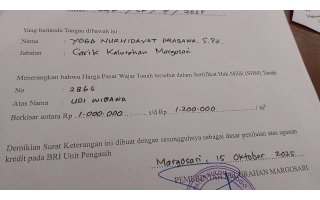 Yang bertanda Tangan dibawah ini :
Nama : YOGA NURHIDAYAT PRABANA S.Pd.
Jabatan : Carik Kalurahan Margosari
Menerangkan bahwa Harga Pasar Wajar Tanah tersebut dalam Sertifikat Hak Milik (SHM) Tanah
No : 2866
Atas Nama : UDI WIBANA
Berkisar antara Rp 1.000.000 s/d Rp 1.200.000 / m²
Demikian Surat Keterangan ini dibuat dengan sesungguhnya sebagai dasar penilaian atas agunan
kredit pada BRI Unit Pengasih
Margosari, 15 Oktober 2025
PEMERINTAH KALURAHAN MARGOSARI